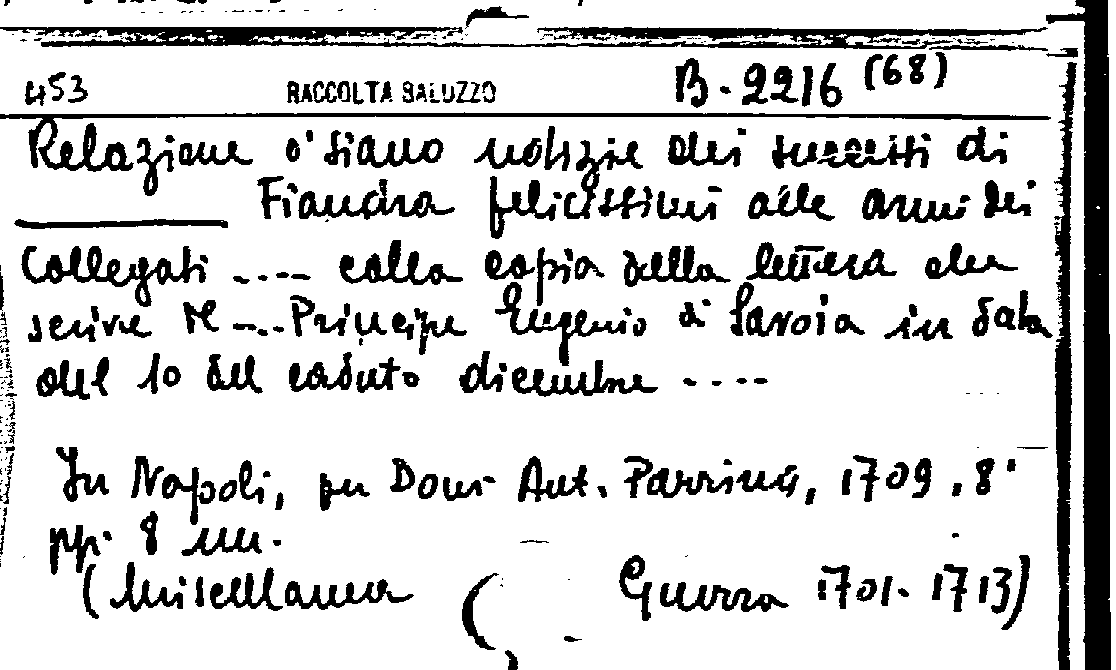 453 RACCOLTA SALUZZO B. 2216 (68)
Relazione o' siano notizie dei successi di
Fiandra felicissimi alle armi dei
Collegati .... colla copia della lettera che
scrive il .... Principe Eugenio di Savoia in data
del 10 del caduto dicembre ....
In Napoli, per Dom. Ant. Parrino, 1709. 8°
pp. 8 nn.
(Miscellanea ( Guerra 1701-1713)